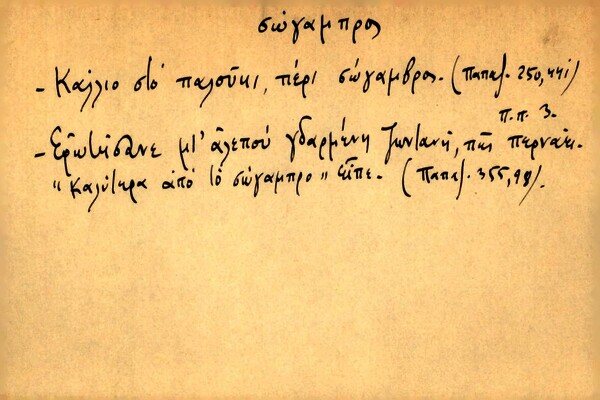 σώγαμπρος
- Κάλλιο στὸ παλούκι, πέρι σώγαμβρος. (Παπαζ. 250,441)
π.π. 3.
- Ἐρωτήσανε μι' ἀλεποῦ γδαρμένη ζωντανή, πῶς περνάει.
"Καλύτερα ἀπὸ τὸ σώγαμπρο" εἶπε. (Παπαζ. 355,98).